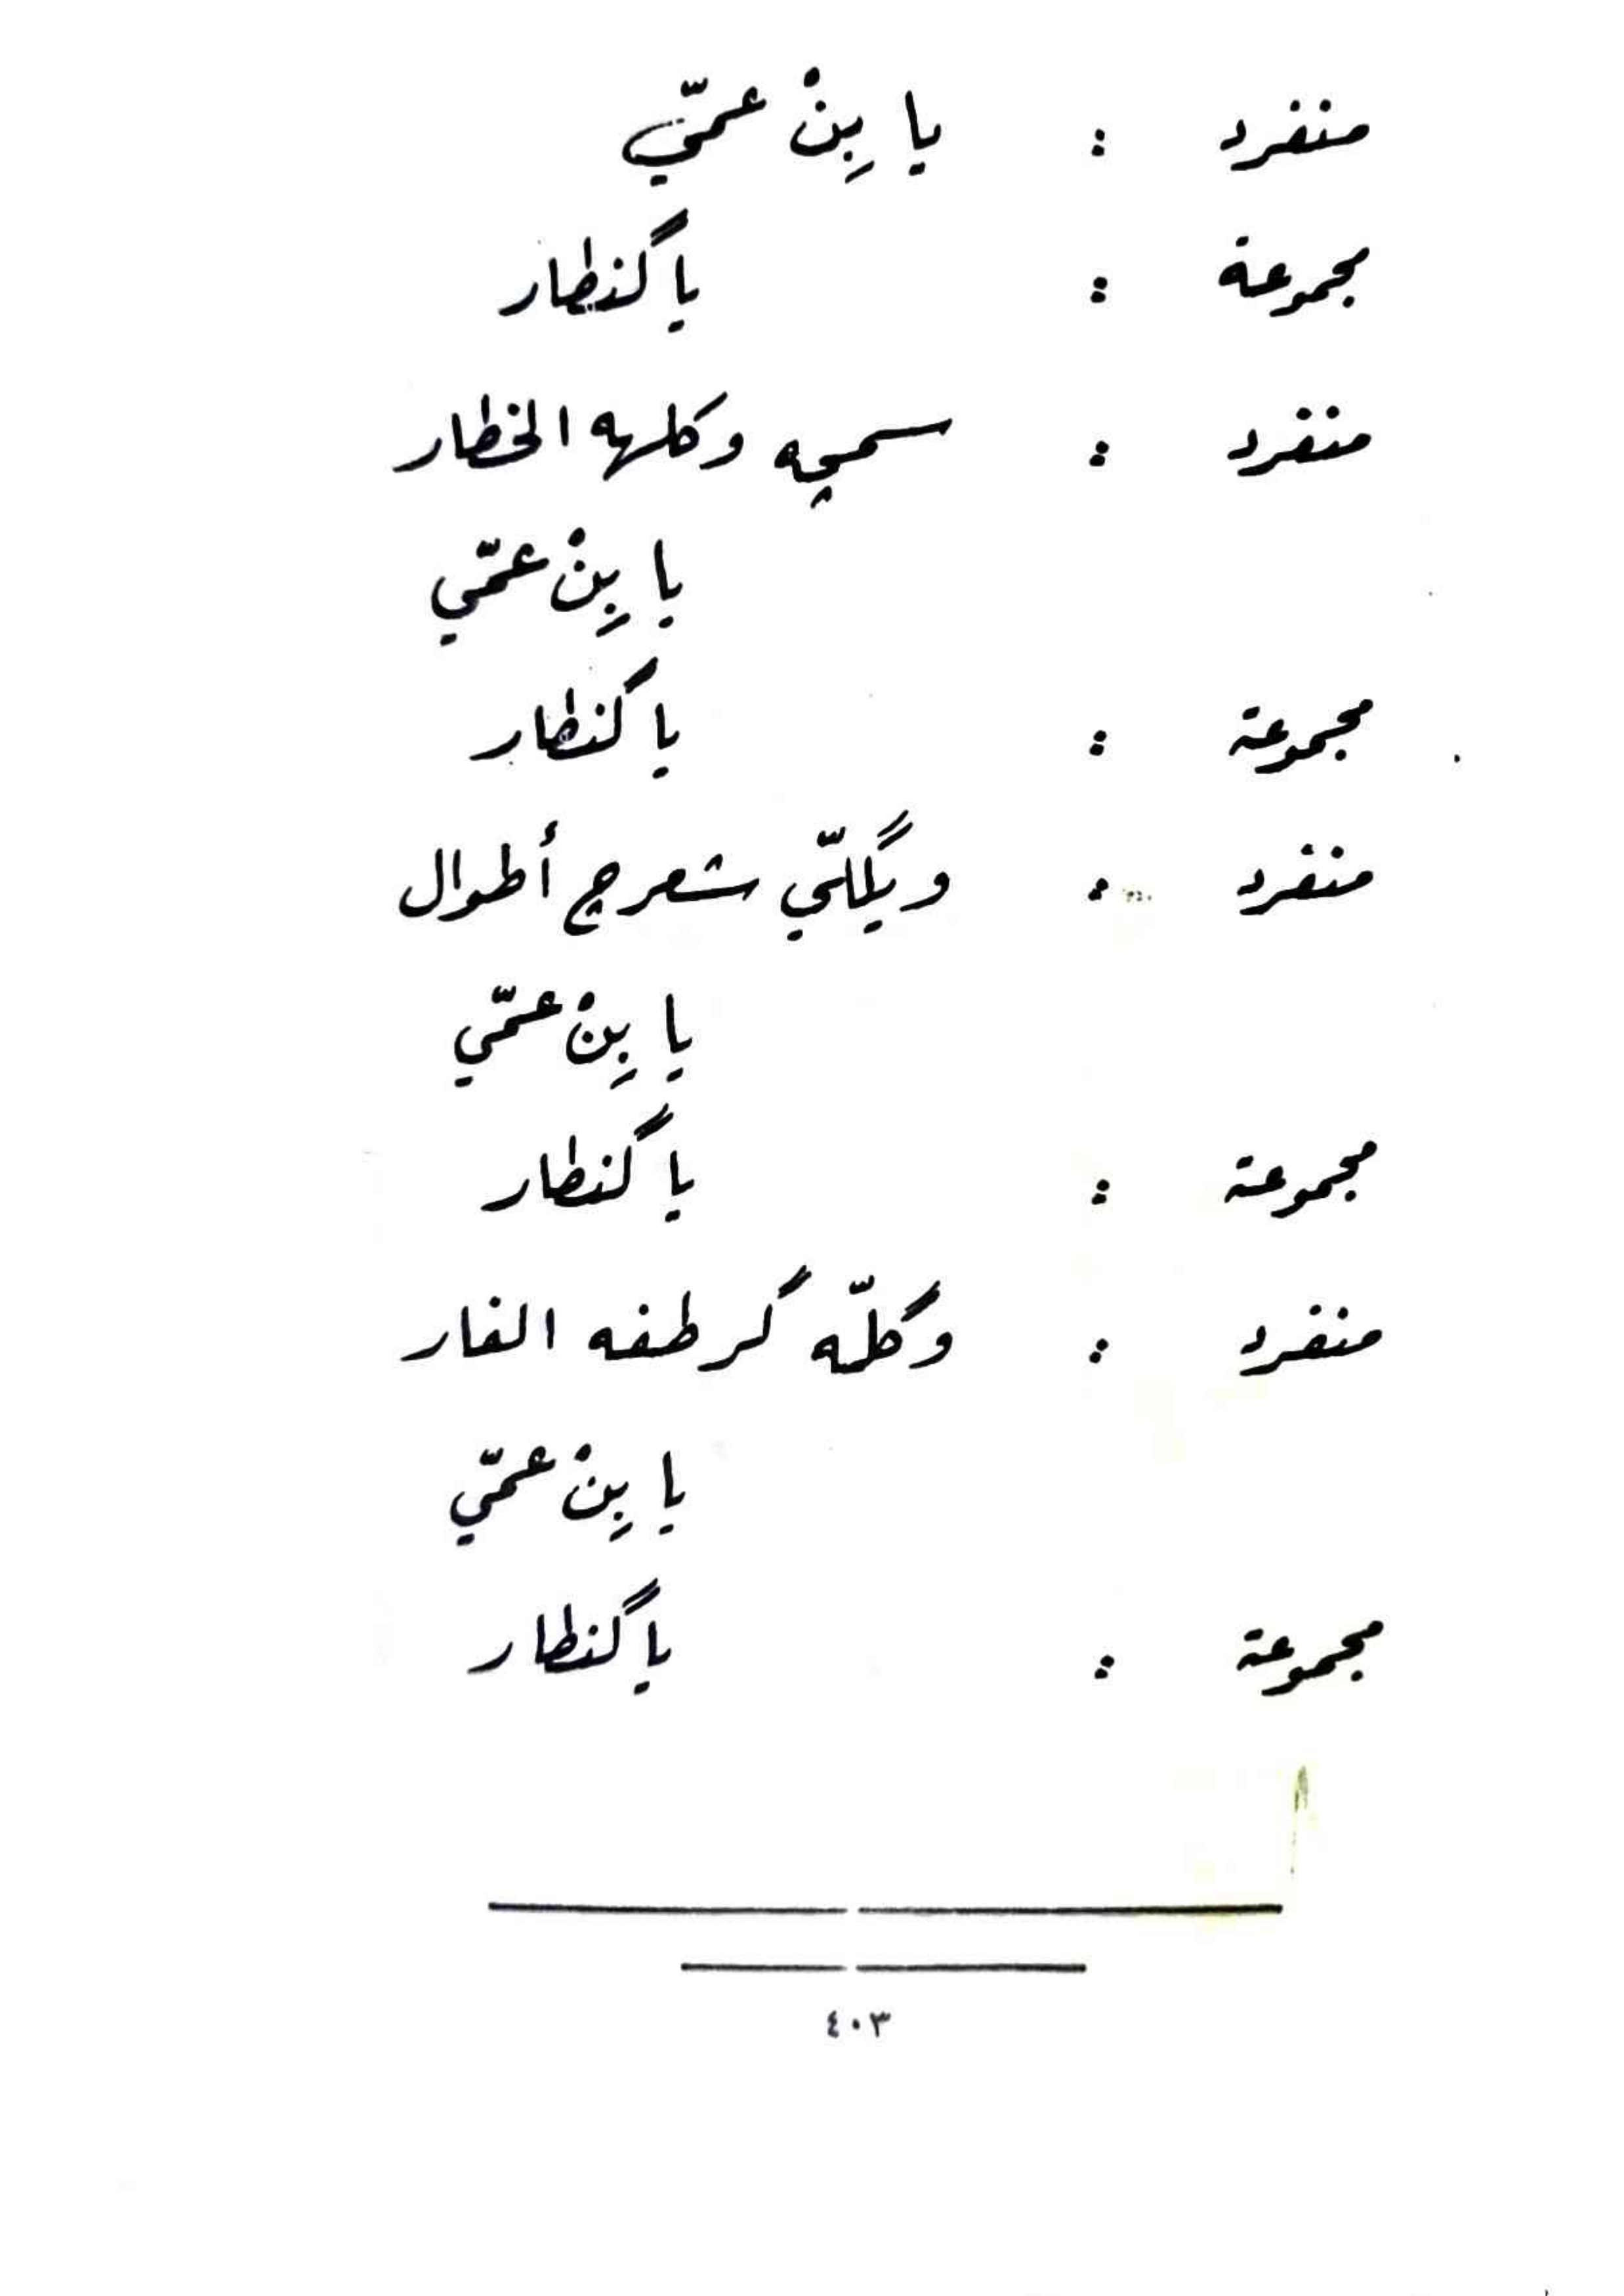 منفرد : يا بِنْ عمّي
مجموعة : يا گنطار
منفرد : سميچه وكلهه الخطار
يا بِنْ عمّي
مجموعة : يا گنطار
منفرد : ويگلّي شعرچ أطوال
يا بِنْ عمّي
مجموعة : يا گنطار
منفرد : وكلّه گرطفه الفار
يا بِنْ عمّي
مجموعة : يا گنطار
٤٠٣